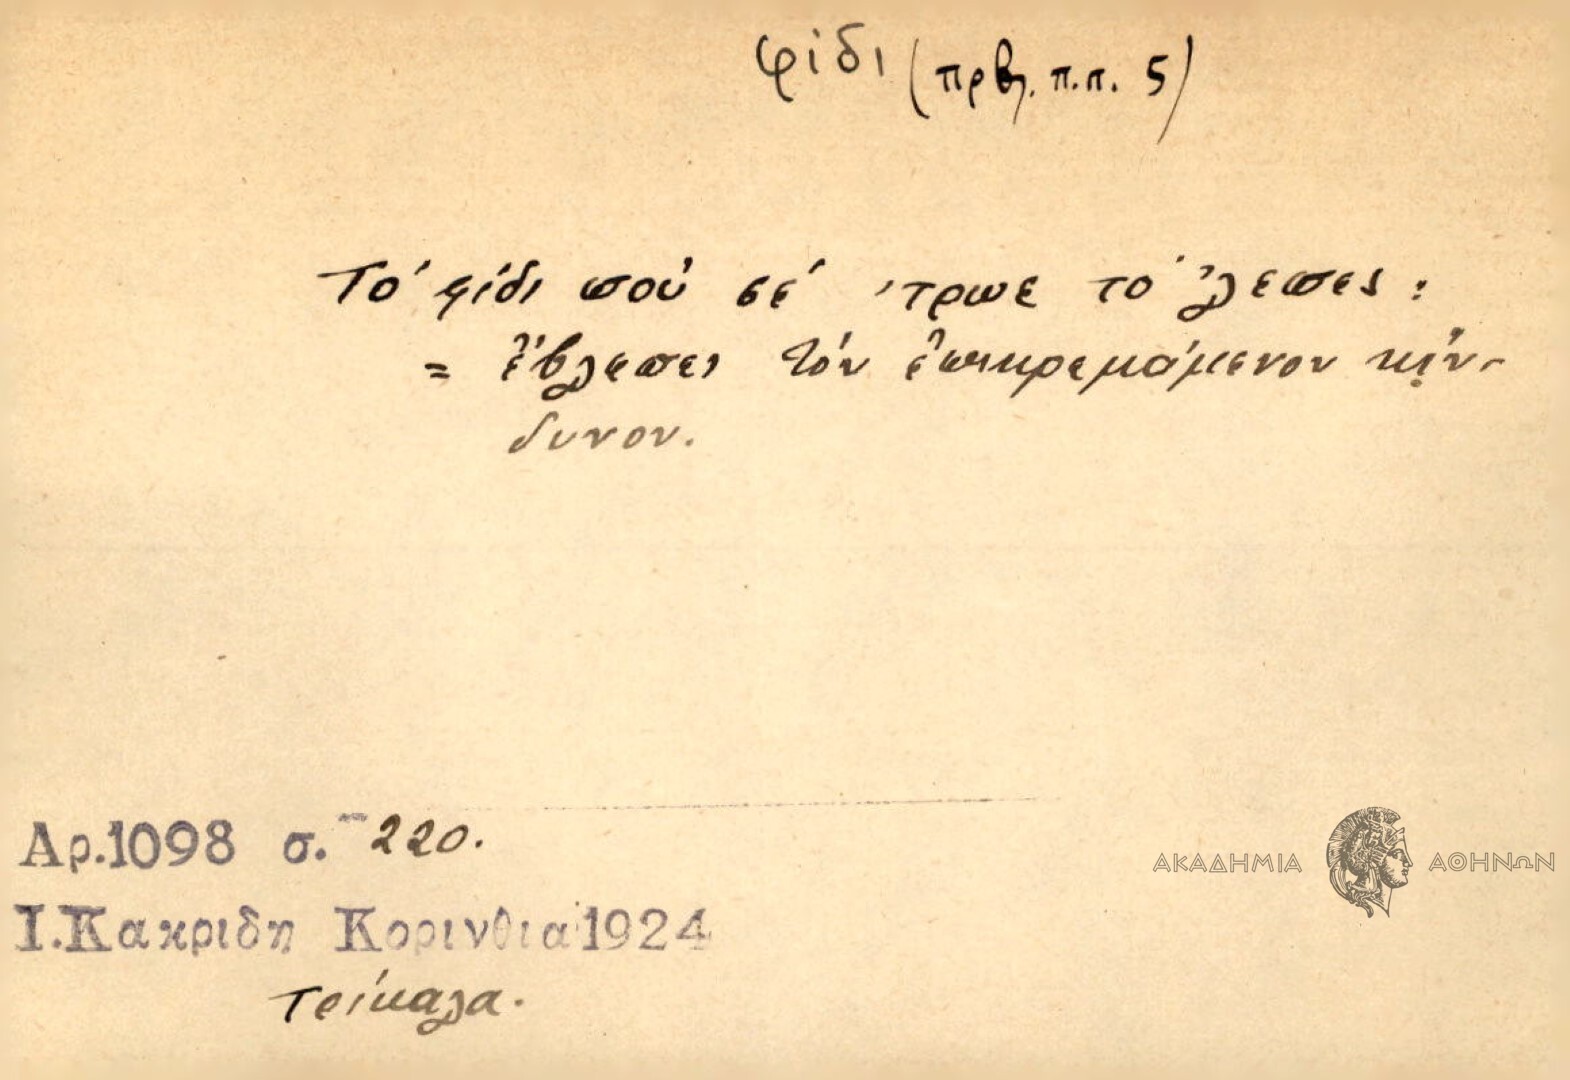 φίδι (πρβλ. π.π. 5)
Τό φίδι πού σέ 'τρωε τό 'λεπες :
= ἔβλεπες τόν ἐπικρεμάμενον κίν-
δυνον.
Αρ.1098 σ. 220.
Ι.Κακριδη Κορινθια 1924
Τρίκαλα.
ΑΚΑΔΗΜΙΑ ΑΘΗΝΩΝ